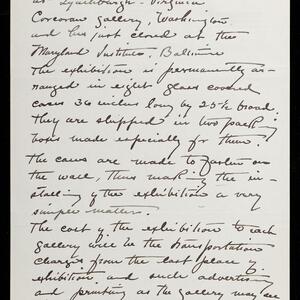 at Lynchburgh - Virginia
Corcoran Gallery, Washington
and has just closed at the
Maryland Institute, Baltimore
The exhibition is permanently ar-
ranged in eight glass covered
cases 36 inches long by 25½ broad;
they are shipped in two packing
boxes made especially for them.
The cases are made to fasten on
the wall, thus making the in-
stalling of the exhibition a very
simple matter.
The cost of the exhibition to each
gallery will be the transportation
charges from the last place of
exhibition and such advertising
and printing as the gallery may see